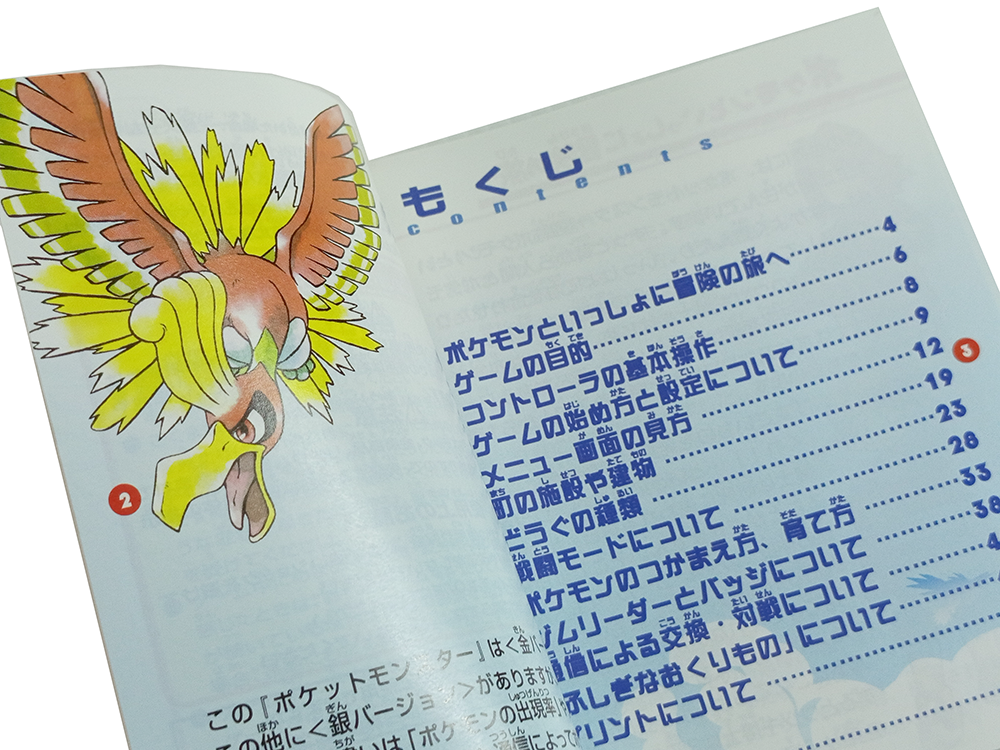 2
この『ポケットモンスター』は<金バー
この他に<銀バージョン>があります
いは「ポケモンの出現率
通信によって
もくじ
contents
ポケモンといっしょに冒険の旅へ……4
ゲームの目的……6
コントローラの基本操作……8
ゲームの始め方と設定について……9
メニュー画面の見方……12
町の施設や建物……19
どうぐの種類……23
戦闘モードについて……28
ポケモンのつかまえ方、育て方……33
ジムリーダーとバッジについて……38
通信による交換・対戦について……4
ふしぎなおくりもの」について……
リントについて……
3